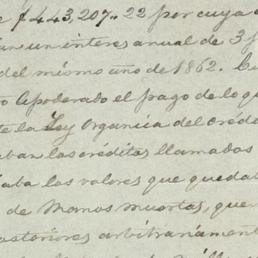 de $ 443,207.. 22 por cuya
un interes anual de 3 p
del mismo año de 1862. Cu
Apoderado el pago de lo q
te la Ley Organica del Créd
aban los créditos llamados
aba los valores que queda
de Manos muertas, que
arbitrariament